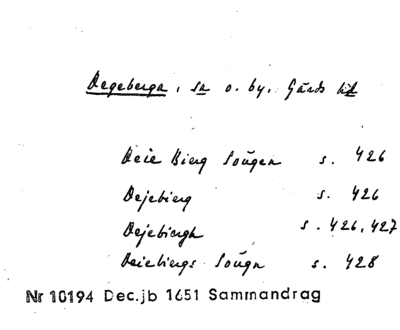 Degeberga, sn o. by, Gärds hd
Deie Bierg Sougen s. 426
Dejebierg s. 426
Dejebiergh s. 426, 427
Deiebiergs Sougn s. 428
Nr 10194 Dec.jb 1651 Sammandrag